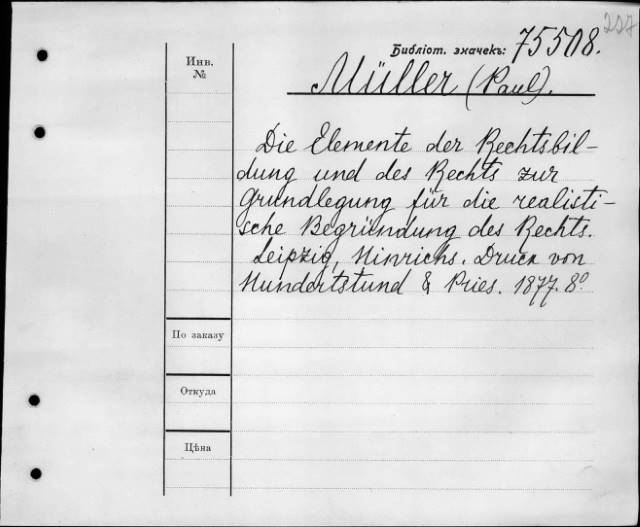 227
Библіот. значекъ: 75508.
Инв.
№
Müller (Paul).
Die Elemente der Rechtsbil-
dung und des Rechts zur
Grundlegung für die realisti-
sche Begründung des Rechts.
Leipzig, Hinrichs. Druck von
Hundertstund & Pries. 1877. 8º
По заказу
Откуда
Цѣна